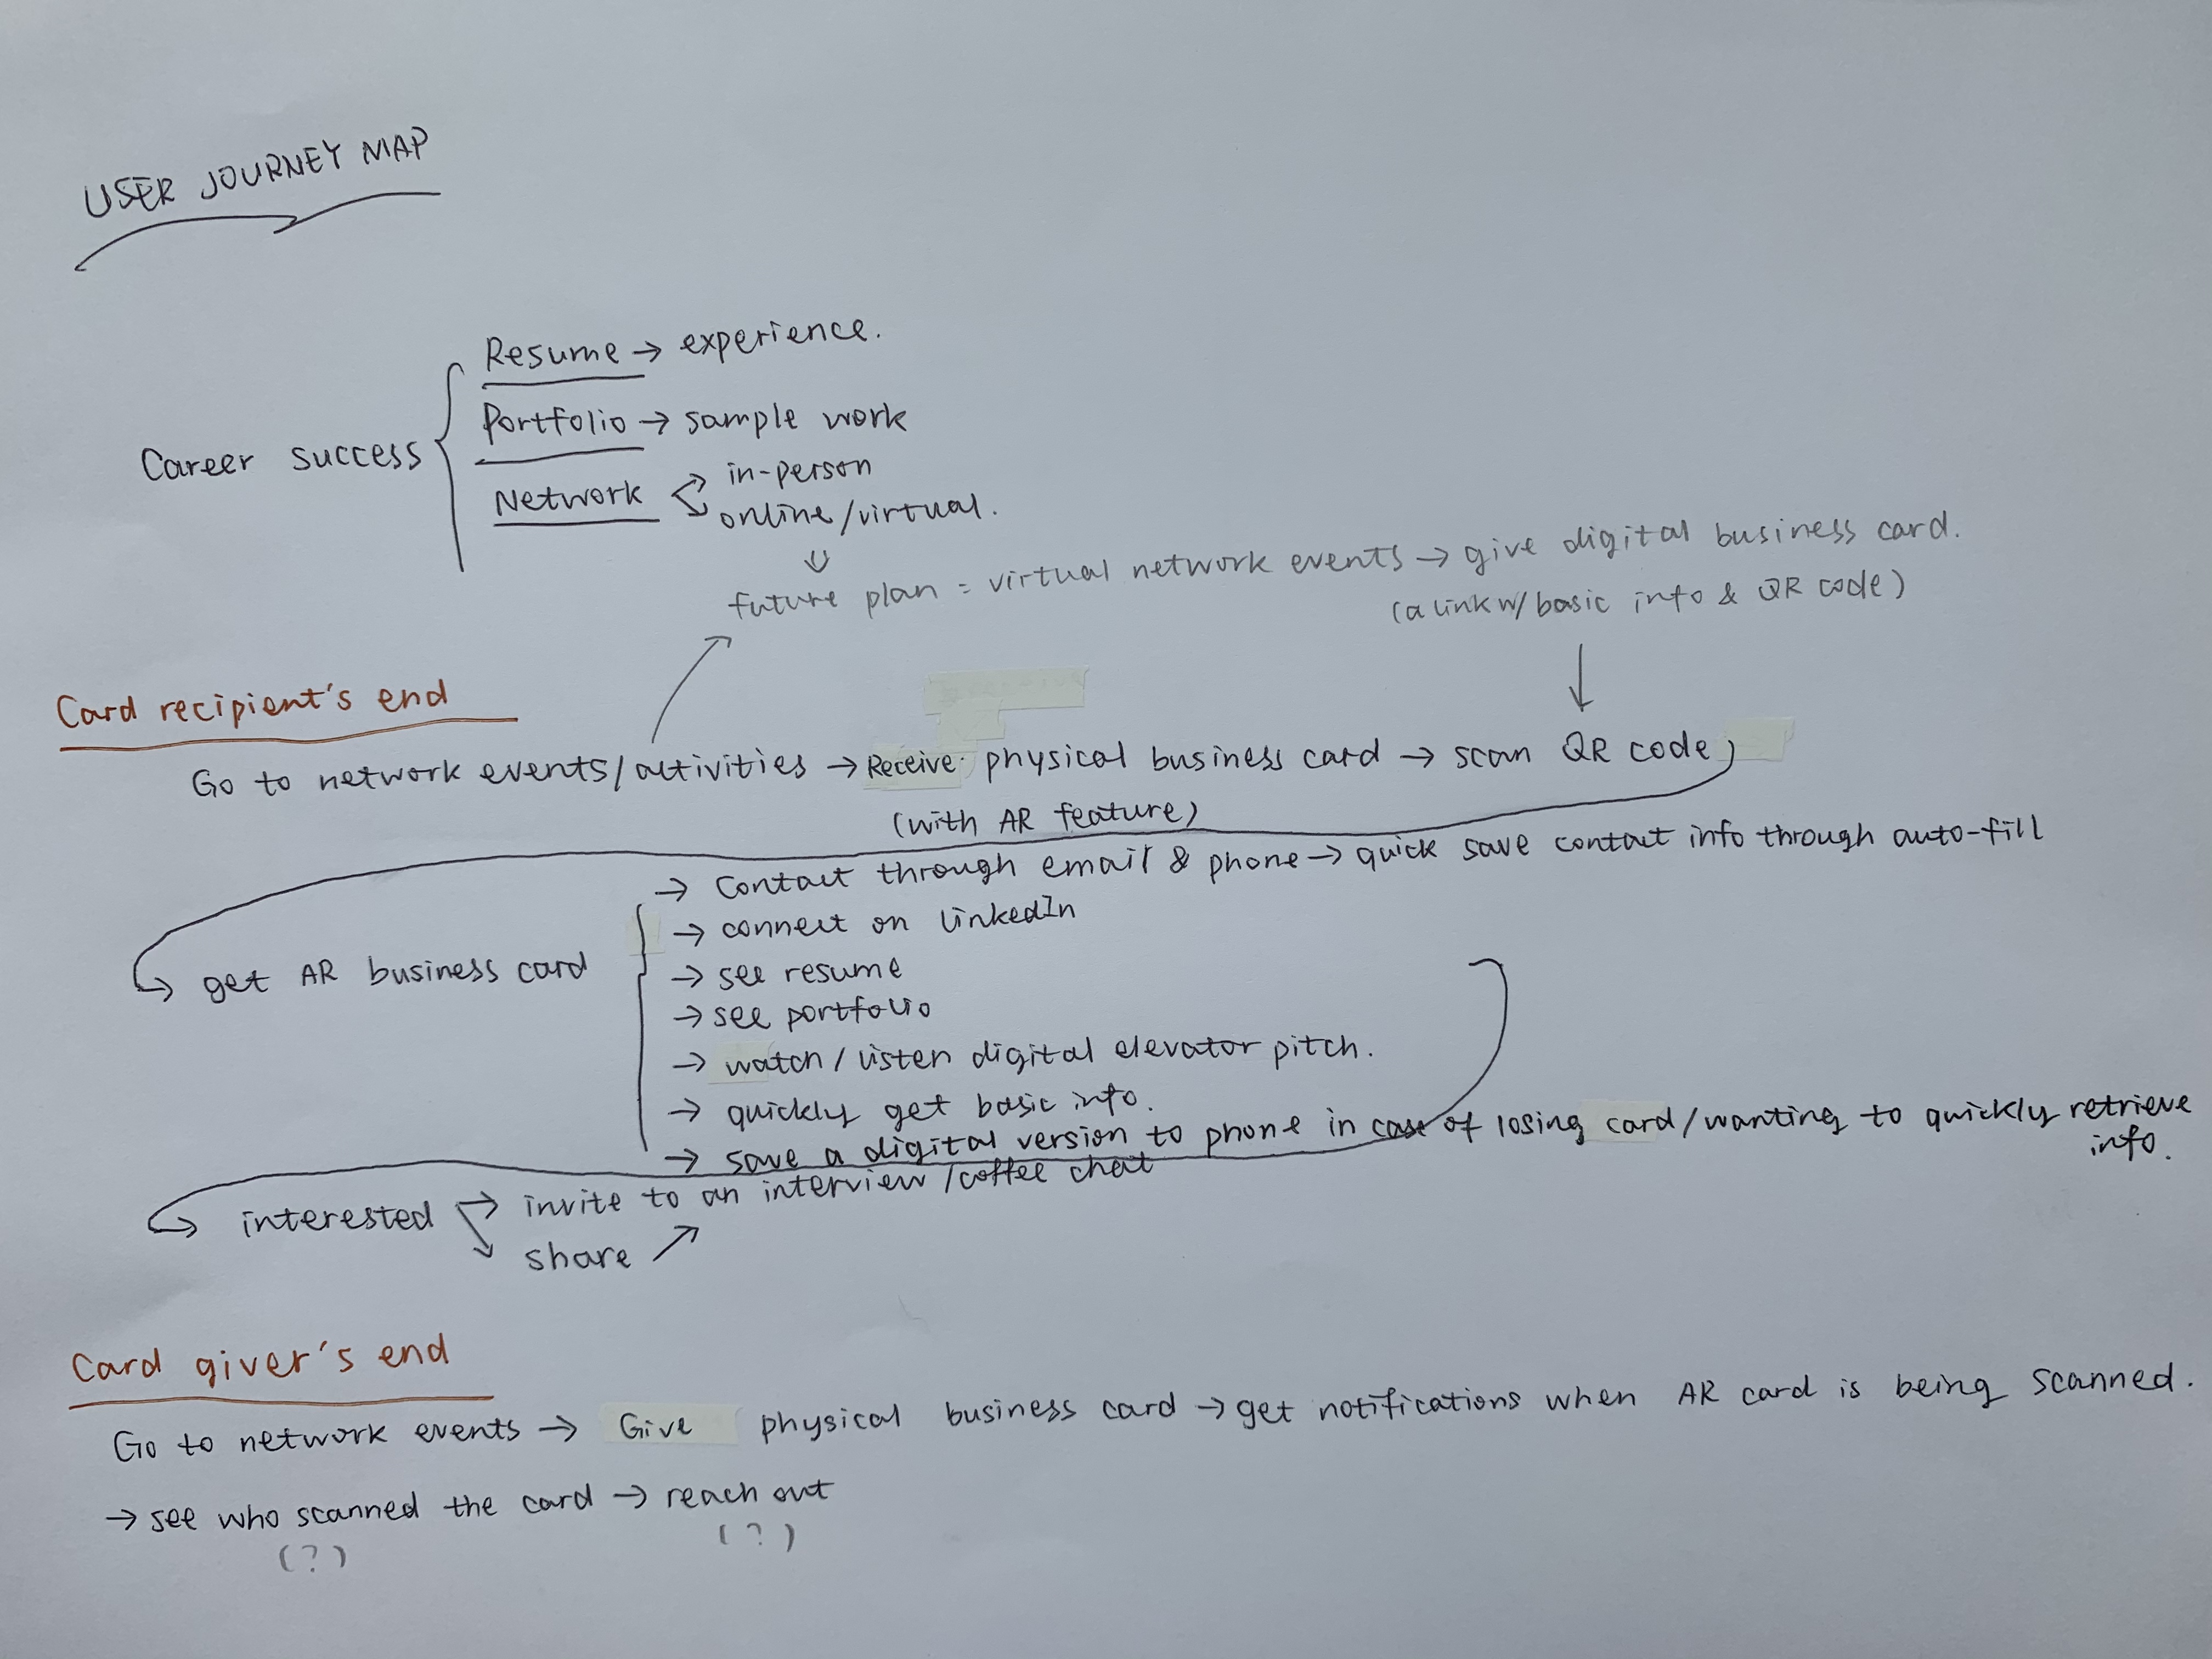 USER JOURNEY MAP
Resume → experience.
Portfolio → sample work
Career success
Network
in-person
online/virtual.
future plan = virtual network events → give digital business card.
(a link w/ basic info & QR code)
Card recipient's end
Go to network events/activities → Receive physical business card → scan QR code
(with AR feature)
→ Contact through email & phone → quick save contact info through auto-fill
→ connect on LinkedIn
get AR business card
→ see resume
→ see portfolio
→ watch / listen digital elevator pitch.
→ quickly get basic info.
→ save a digital version to phone in case of losing card/wanting to quickly retrieve
info.
interested → invite to an interview /coffee chat
share
Card giver's end
Go to network events → Give physical business card → get notifications when AR card is being scanned.
→ see who scanned the card → reach out
(?) (?)